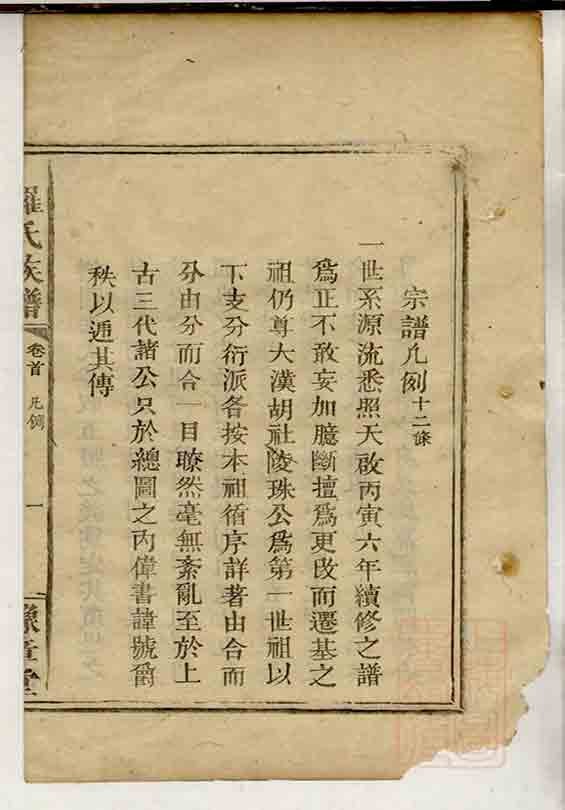 宗譜凡例十二條
一世系源流悉照天啟丙寅六年續修之譜
爲正不敢妄加臆斷擅爲更改而遷基之
祖仍尊大漢胡社陵珠公爲第一世祖以
下支分衍派各按本祖循序詳著由合而
分由分而合一目瞭然毫無紊亂至於上
古三代諸公只於總圖之內偉書諱號爵
秩以遞其傳
羅氏族譜
卷首 凡例
一
豫章堂